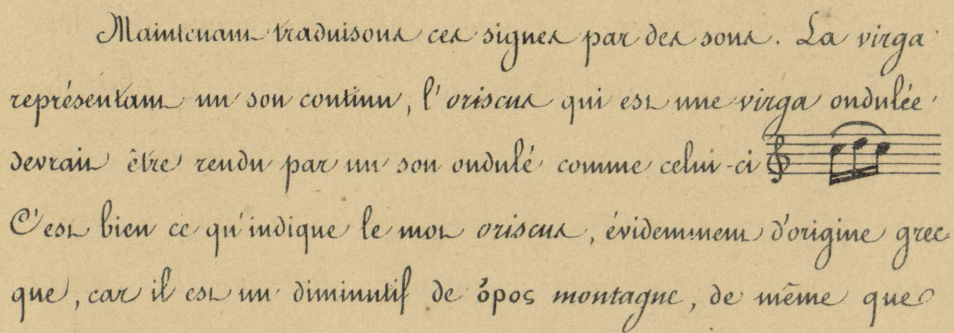 Maintenant traduisons ces signes par des sons. La virga
représentant un son continu, l'oriscus qui est une virga ondulée
devrait être rendu par un son ondulé comme celui-ci
C'est bien ce qu'indique le mot oriscus, évidemment d'origine grec-
que, car il est un diminutif de ὄρος montagne, de même que